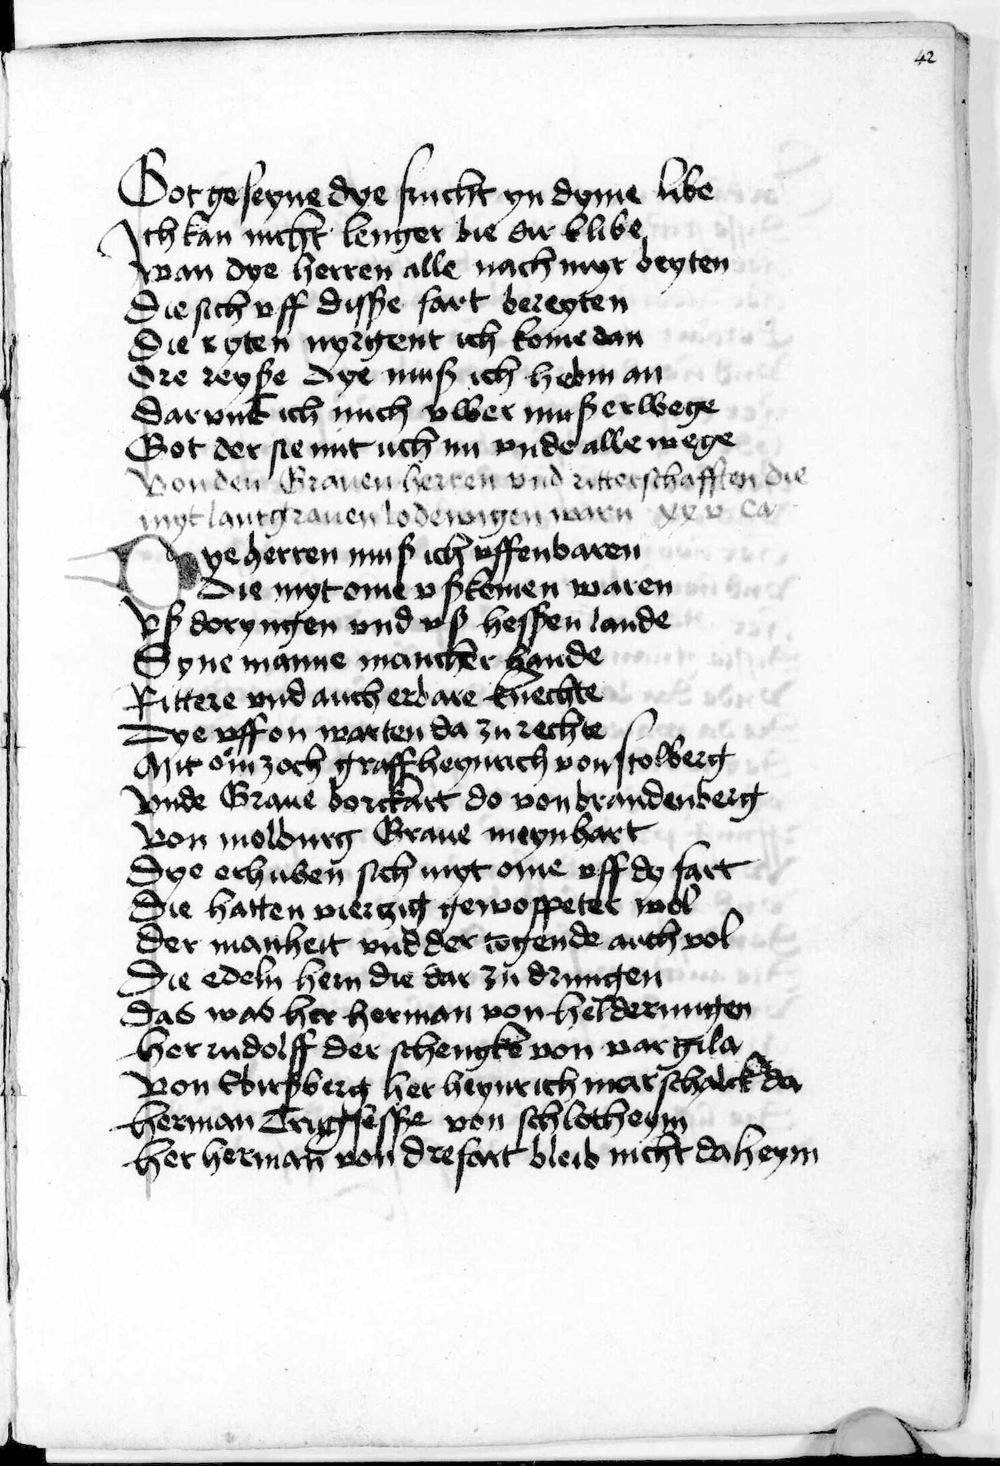 42
Got geseyne dye frucht yn dyme libe
Ich kan nicht lenger bie dir blibe
Wan dye herren alle nach myr beyten
Die sich vff disse fart bereyten
Die ryten nyrgent ich kome dan
Dye reyße dye muß ich hebin an
Dar vmb ich mich vwer muß erwege
Got der sie mit uch nu vnde alle wege
Von den Grauen herren vnd ritterschafften die
myt lantgrauen lodewigen warn xxv Ca
Dye herren muß ich vffenbaren
Die myt ome vßkomen waren
Vß doryngen vnd vß hessen lande
Syne manne mancher hande
Rittere vnd auch erbare knechte
Dye vff on warten da zu rechte
Mit om zoch graff heynrich von stolberg
Vnde Graue borckart do von brandenberg
Von molburg Graue meynhart
Dye erhuben sich myt ome vff dy fart
Die hatten vierzig gewoppeter wol
Der manheit vnd der togende auch vol
Die edeln hern die dar zu drungen
Das was her herman von helderungen
her rudolff der schengke von vargila
Von Ebirßberg her heynrich marschalck da
herman Trugsesse von schlotheym
her herman von drefart bleib nicht da heym